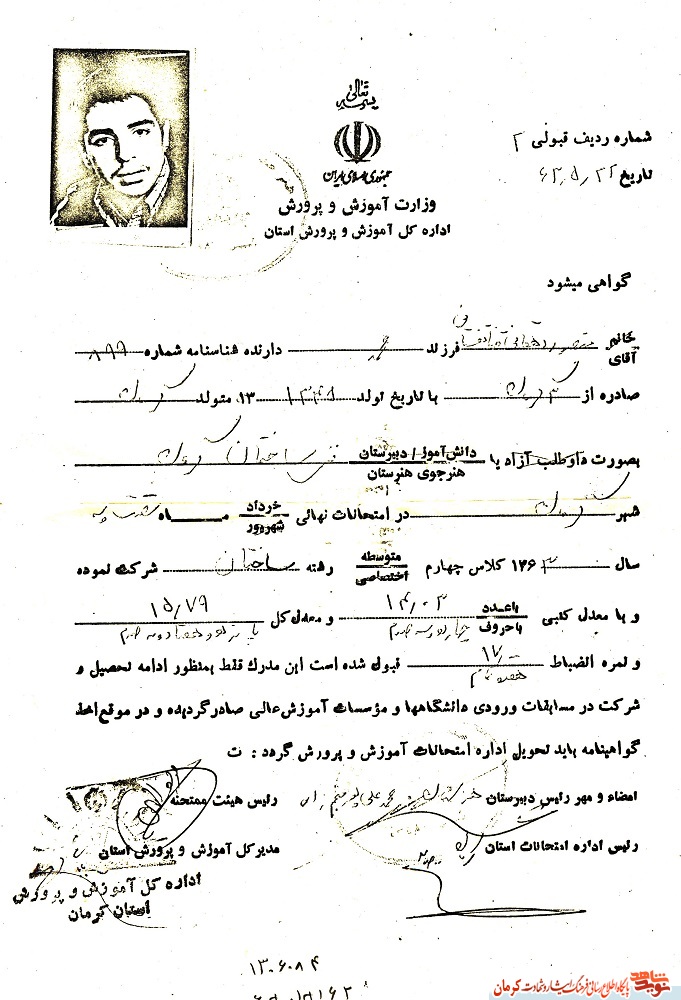 بسمه تعالی
جمهوری اسلامی ایران
وزارت آموزش و پرورش
اداره کل آموزش و پرورش استان
شماره ردیف قبولی ۲
تاریخ ۶۳٫۵٫۲۲
گواهی میشود
خانم
آقای منصور فرزند محمد دارنده شناسنامه شماره ۸۹۹
صادره از کرمان با تاریخ تولد ۱۳۴۱ ۱۳ متولد کرمان
بصورت داوطلب آزاد یا دانش‌آموز / دبیرستان
هنرجوی هنرستان فنی ساختمان کرمان
شهر کرمان در امتحانات نهائی خرداد
شهریور مــــاه
سال ۱۳۶۳ کلاس چهارم متوسطه
اختصاصی رشته ساختمان شرکت نموده
و با معدل کتبی باعدد ۱۴٫۰۳ و معدل کل ۱۵٫۷۹
باحروف چهارده و سه صدم پانزده و هفتاد و نه صدم
و نمره انضباط ۱۷٫۰۰ قبول شده است این مدرک فقط بمنظور ادامه تحصیل و
هفده تمام
شرکت در مسابقات ورودی دانشگاهها و مؤسسات آموزش عالی صادر گردیده و در موقع اخذ
گواهینامه باید تحویل اداره امتحانات آموزش و پرورش گردد : ت
امضاء و مهر رئیس دبیرستان محمد علی رئیس هیئت ممتحنه
رئیس اداره امتحانات استان مدیر کل آموزش و پرورش استان
اداره کل آموزش و پرورش
استان کرمان
۱۳۰۶۰۸۴
نوید شاهد
پایگاه اطلاع رسانی فرهنگ ایثار و شهادت کرمان